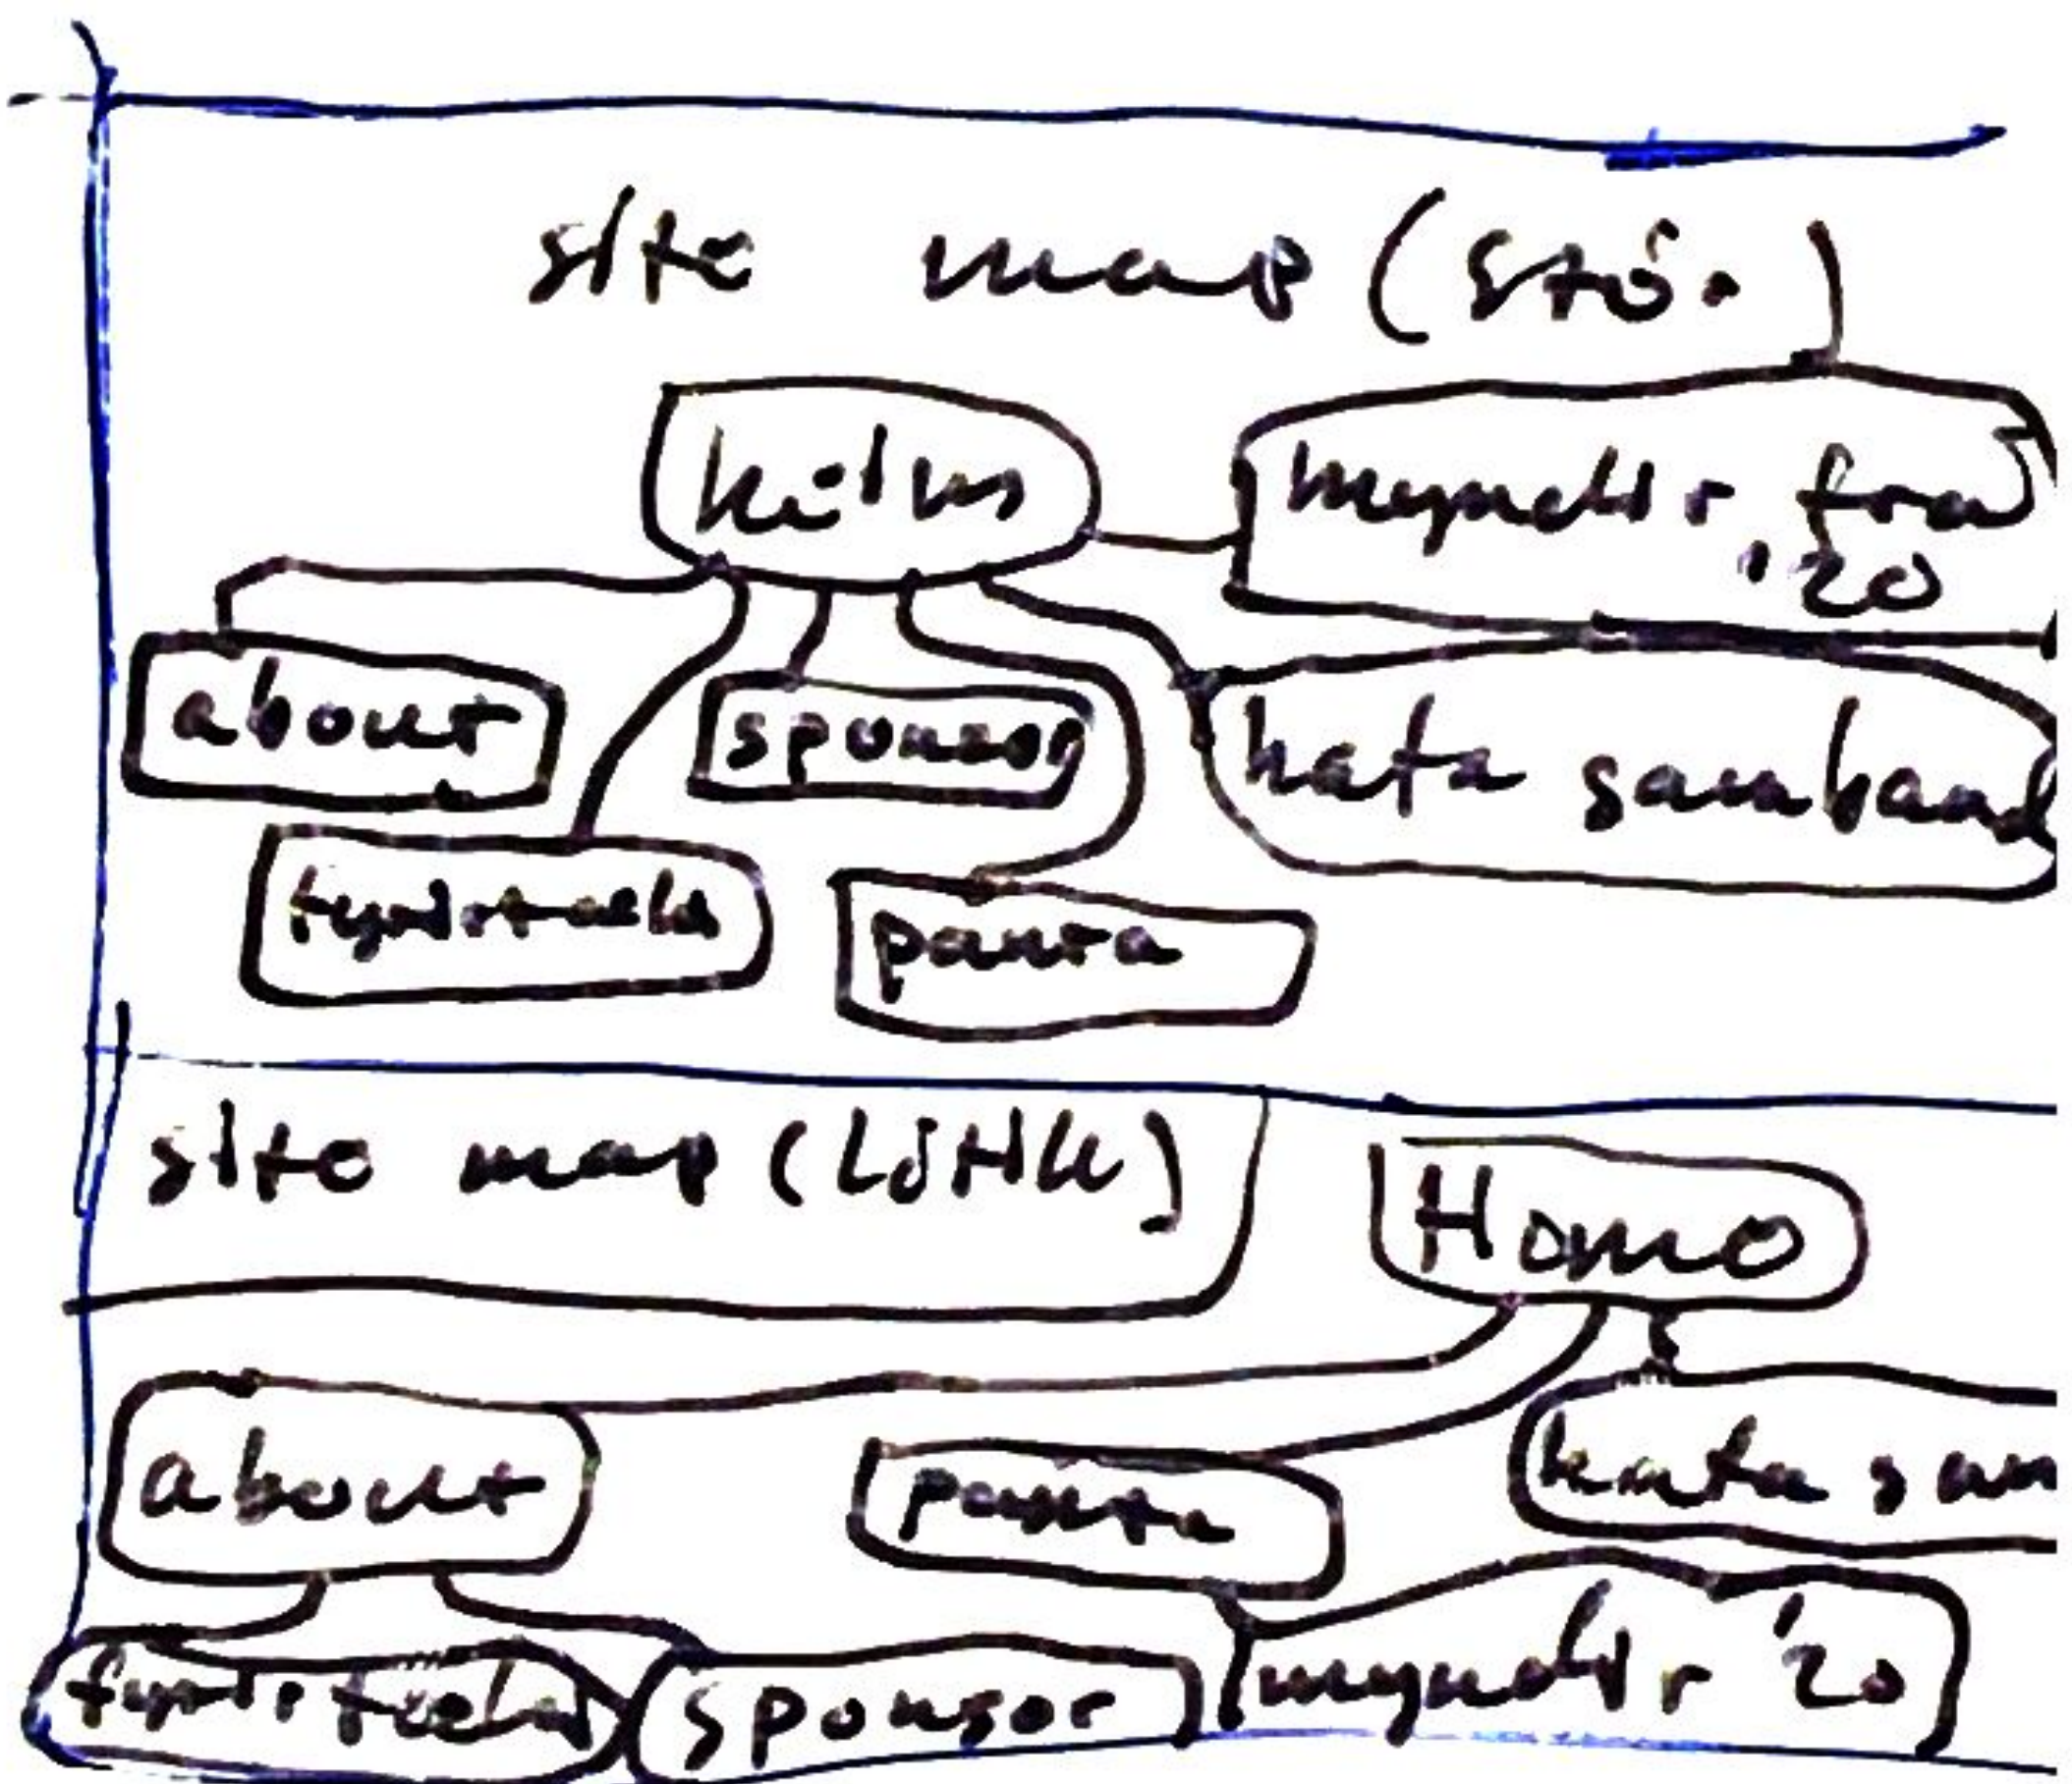 site map (stór)
heim
myndir frá
'20
about
sponsor
hafa samband
panta
site map (Lítil)
Home
about
panta
hafa sam
sponsor
myndir '20